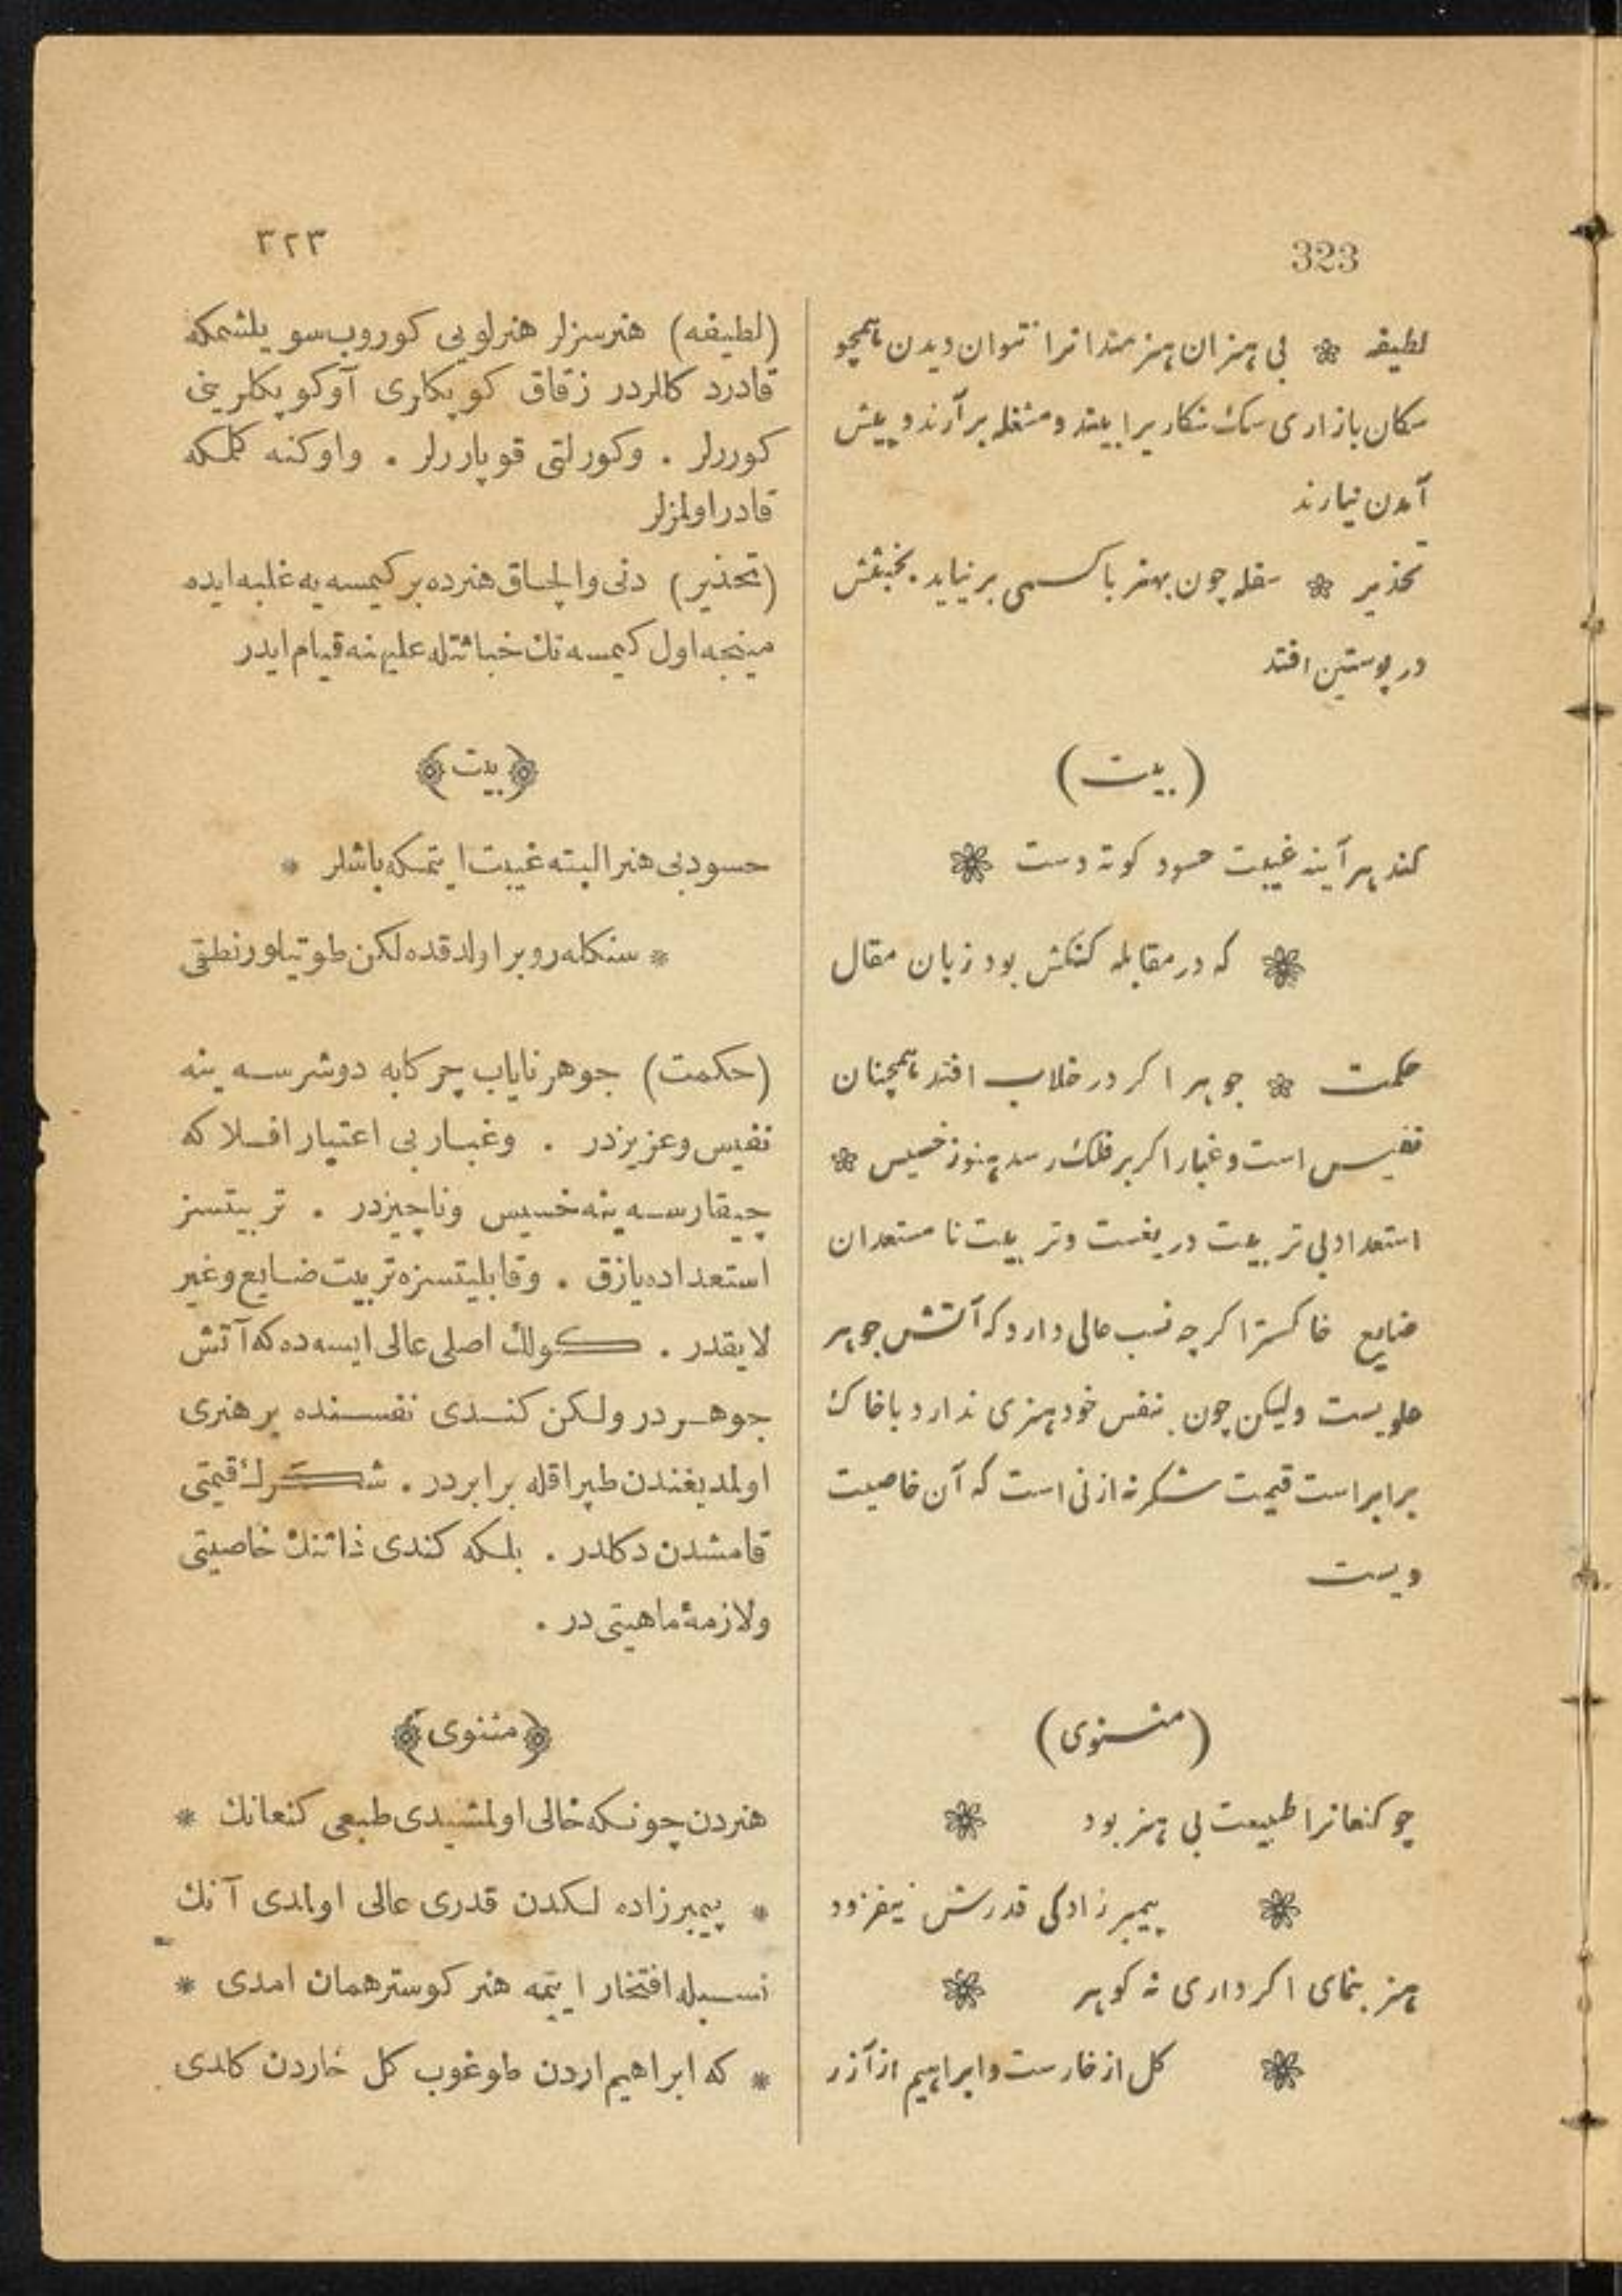 323
لطیفه ❀ بی هنران هنرمندانرا نتوان دیدن همچو
سکان بازاری سک شکاریرا بیند و مشغله برآرند و پیش
آمدن نیارند
تحذیر ❀ سفله چون بهنر با کسی بر نیاید بخبثش
در پوستین افتد
(بیت)
کند هر آینه غیبت حسود کوته دست ❀
❀ که در مقابله کنکش بود زبان مقال
حکمت ❀ جوهر اکر در خلاب افتد همچنان
نفیس است و غبار اکر بر فلک رسد هنوز خسیس ❀
استعداد بی تربیت دریغست و تربیت نا مستعدان
ضایع خاکستر اکرچه نسب عالی دارد که آتش جوهر
علویست ولیکن چون بنفس خود هنری ندارد با خاک
برابر است قیمت شکر نه از نی است که آن خاصیت
ویست
(مثنوی)
چو کنعانرا طبیعت بی هنر بود ❀
❀ پیمبر زادکی قدرش نیفزود
هنر بنمای اکر داری نه کوهر ❀
❀ کل از خارست و ابراهیم از آزر
٣٢٣
(لطیفه) هنرسزلر هنرلویی کوروب سویلشمکه
قادرد کللردر زقاق کوپکلری آوکوپکلرینی
کوررلر . وکورلتی قوپاررلر . واوکنه کلمکه
قادر اولمزلر
(تحذیر) دنی والچاق هنرده برکیمسه یه غلبه ایده
مینجه اول کیمسه نک خباثتله علیهنه قیام ایدر
﴿بیت﴾
حسود بی هنر البته غیبت ایتمکه باشلر *
* سنکله روبرا ولدقده لکن طوتیلور نطقی
(حکمت) جوهر نایاب چرکابه دوشرسه ینه
نفیس وعزیزدر . وغبار بی اعتبار افلاکه
چیقارسه ینه خسیس وناچیزدر . تربیتسز
استعداده یازق . وقابلیتسزه تربیت ضایع وغیر
لایقدر . کولک اصلی عالی ایسه ده که آتش
جوهردر ولکن کندی نفسنده بر هنری
اولمدیغندن طپراقله برابردر . شکرک قیمتی
قامشدن دکلدر . بلکه کندی ذاتنک خاصیتی
ولازمهٔ ماهیتی در .
﴿مثنوی﴾
هنردن چونکه خالی اولمشیدی طبعی کنعانک *
* پیمبرزاده لکدن قدری عالی اولمدی آنک
نسبله افتخار ایتمه هنر کوستر همان امدی *
* که ابراهیم اردن طوغوب کل خاردن کلدی